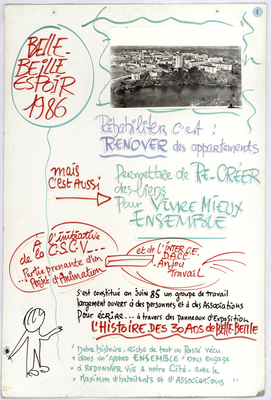 1
BELLE-
BEILLE
ESPOIR
1986
Réhabiliter c'est :
RENOVER des appartements
mais
C'EST AUSSI
Permettre de RE-CRÉER
des liens
Pour VIVRE MIEUX
ENSEMBLE
A l'initiative
de la C.S.C.V....
...Partie prenante d'un
Projet d'Animation
et de l'INTER C.E.
DACC
Anjou
Travail
s'est constitué en Juin 85 un groupe de travail
largement ouvert à des personnes et à des Associations
Pour ÉCRIRE... à travers des panneaux d'Exposition
L'HISTOIRE DES 30 ANS de BELLE-BEILLE
"Notre histoire, riche de tout un Passé vécu
"dans un "grand ENSEMBLE" nous engage
"à REDONNER VIE à notre Cité - avec le
"Maximum d'habitants et d'ASSOCIATIONS"